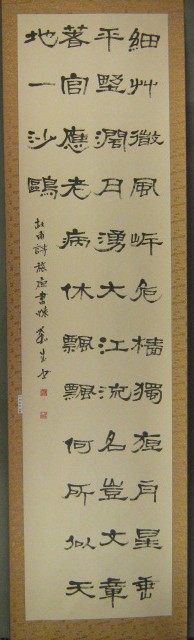 細艸微風岸危檣獨夜舟星垂
平野濶月湧大江流名豈文章
著官應老病休飄飄何所似天
地一沙鷗
杜甫詩旅夜書懐